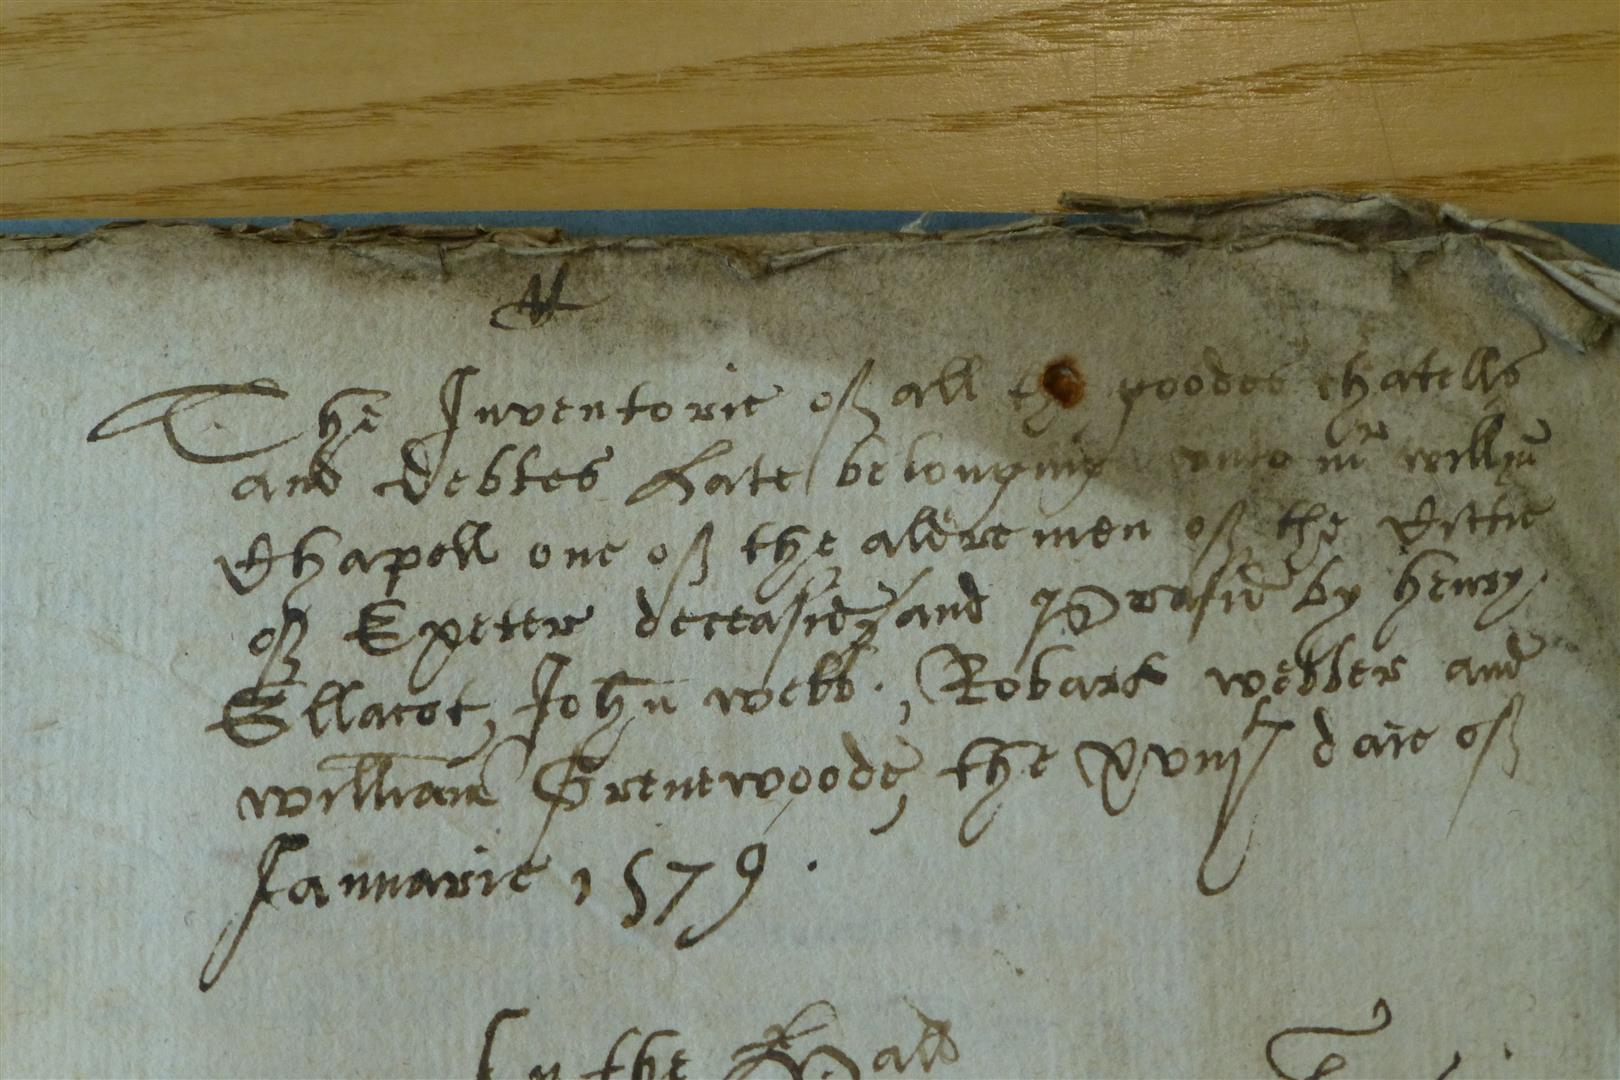 The Inventorie of all the goodes chatells
and debtes Late belonging unto mr willm
Chapell one of the aldermen of the Cittie
of Exeter deceasid, and Praysid by henry
Ellacot, John webb, Robart webber and
william Grenewoode, the xviijth daie of
Januarie 1579.
In the Hall